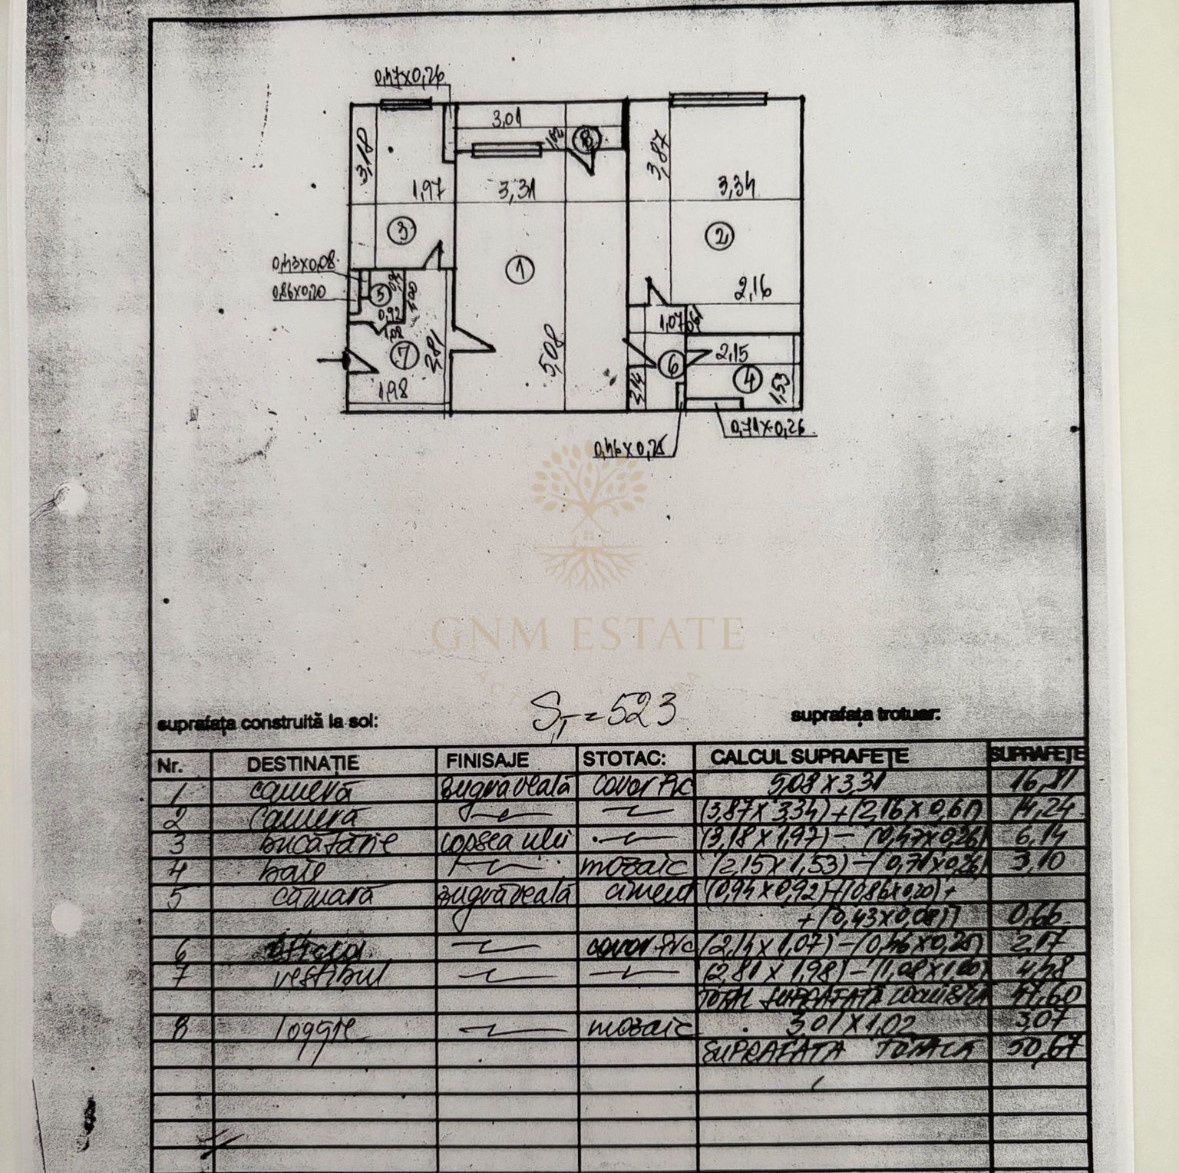 0,47x0,26
3,01
1,02
8
3,18
3,87
1,97
3,31
3,34
3
2
1
0,43x0,08
0,86x0,20
5
0,94
1,00
0,92
2,16
1,08
1,07
0,61
7
2,81
5,08
6
2,15
4
1,53
1,98
2,14
0,71x0,26
0,46x0,25
GNM ESTATE
suprafața construită la sol:
ST = 523
suprafața trotuar:
Nr. DESTINAȚIE FINISAJE STOTAC: CALCUL SUPRAFEȚE SUPRAFEȚE
1 cameră zugrăveală covor Pvc 5,08 x 3,31 16,81
2 cameră (3,87 x 3,34) + (2,16 x 0,61) 14,24
3 bucătărie (3,18 x 1,97) - (0,47x0,26) 6,14
4 baie mozaic (2,15 x 1,53) - (0,71x0,26) 3,10
5 cămară zugrăveală ciment (0,94 x 0,92)+(0,86x0,20)+
+ (0,43x0,08)] 0,66
6 covor Pvc (2,14 x 1,07) - (0,46x0,25) 2,17
7 vestibul (2,81 x 1,98) - (1,08x1,00) 4,48
TOTAL SUPRAFATA LOCUIBILA 47,60
8 loggie mozaic 3,01 x 1,02 3,07
SUPRAFATA TOTALA 50,67